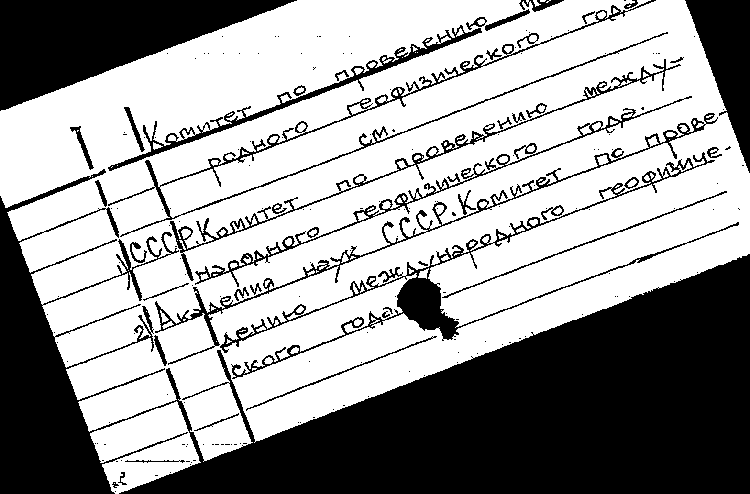 Комитет по проведению
родного геофизического года
см.
1) СССР. Комитет по проведению между-
народного геофизического года.
2) Академия наук СССР. Комитет по прове-
дению международного геофизиче-
ского года.